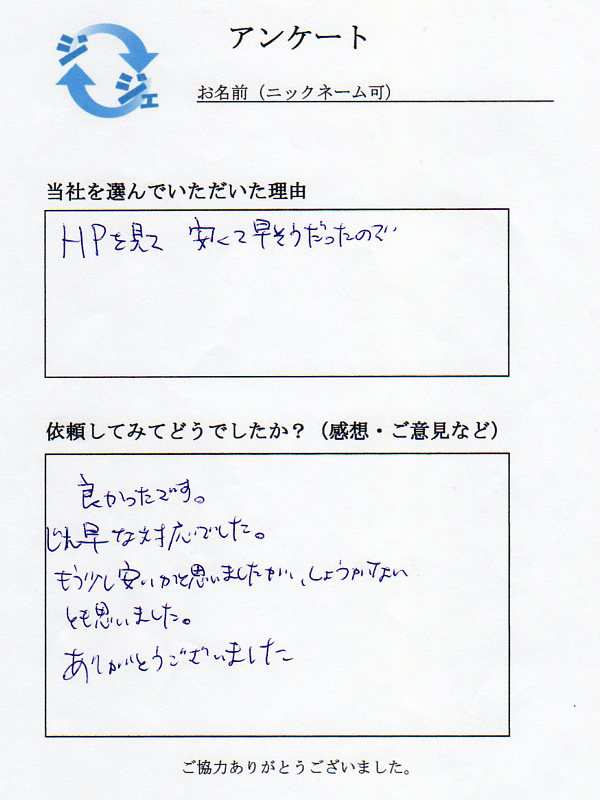 ジジェ
アンケート
お名前（ニックネーム可）
当社を選んでいただいた理由
HPを見て 安くて早そうだったので
依頼してみてどうでしたか？（感想・ご意見など）
良かったです。
じん早な対応でした。
もう少し安いかと思いましたが、しょうがない
とも思いました。
ありがとうございました
ご協力ありがとうございました。